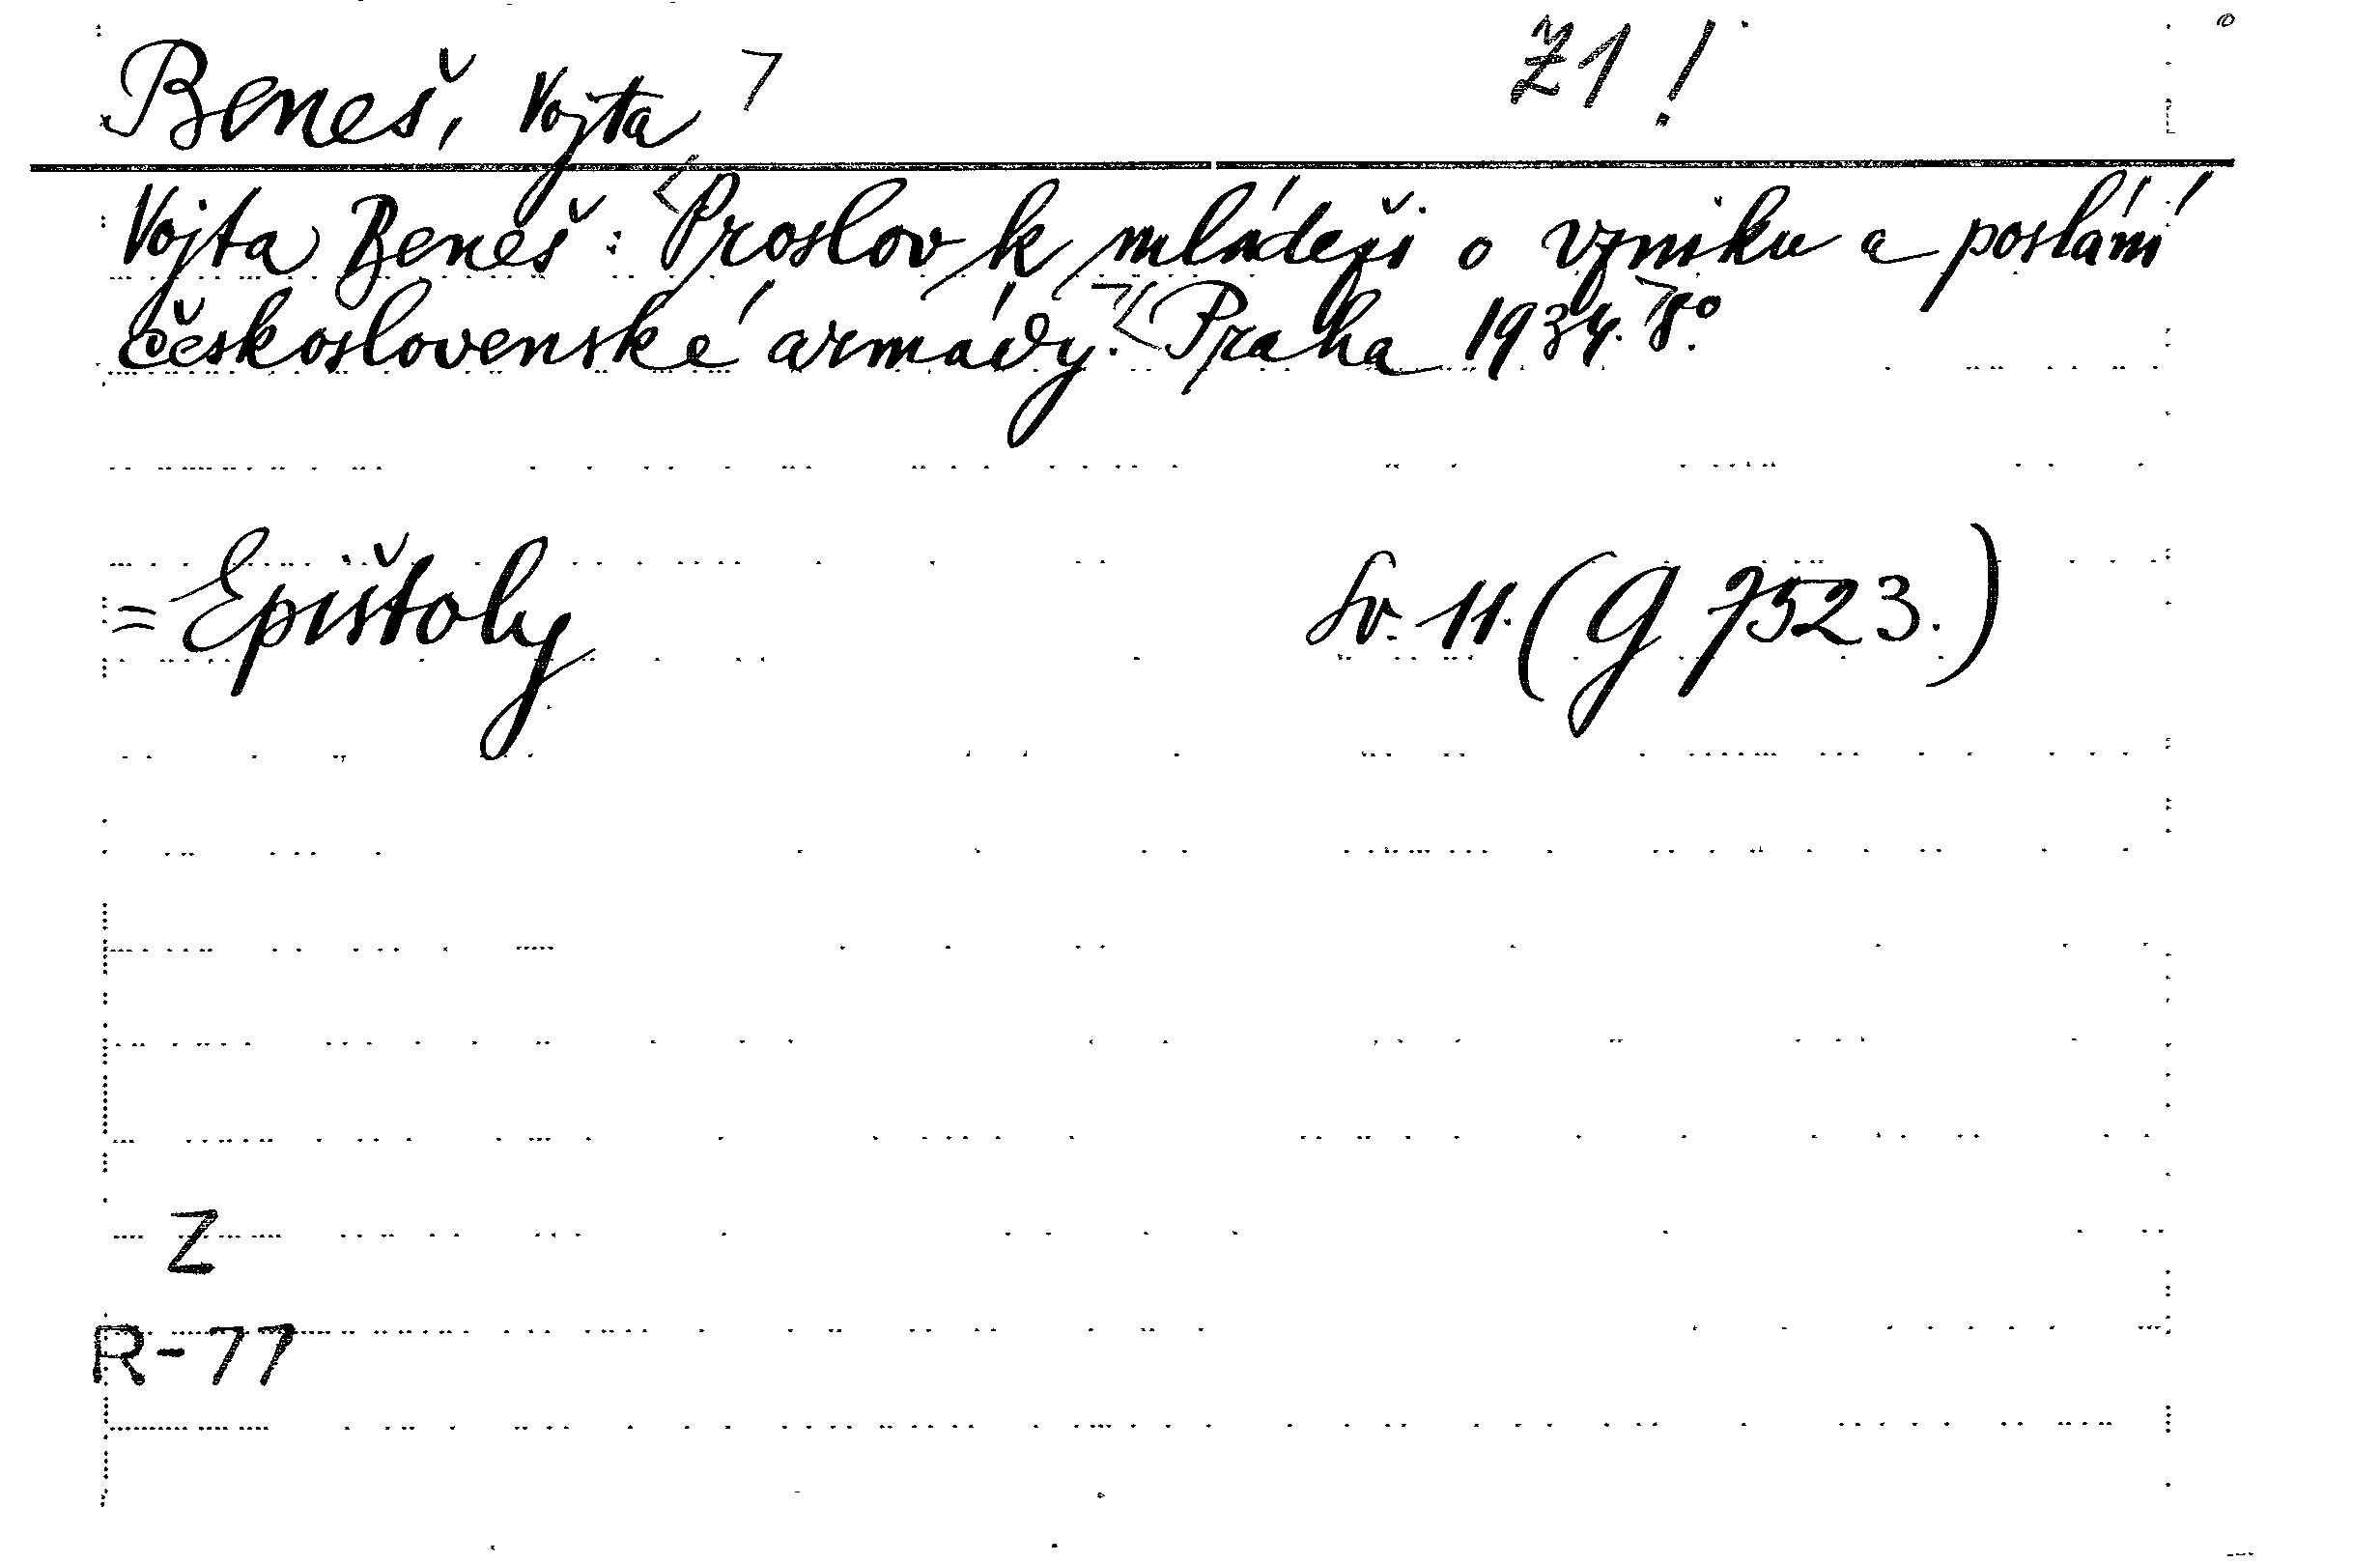 Beneš, Vojta ž1!
Vojta Beneš: Proslov k mládeži o vzniku a poslání
československé armády. Praha 1934. 8°.
= Epištoly Sv. 11. (G 7523.)
Z
R-77